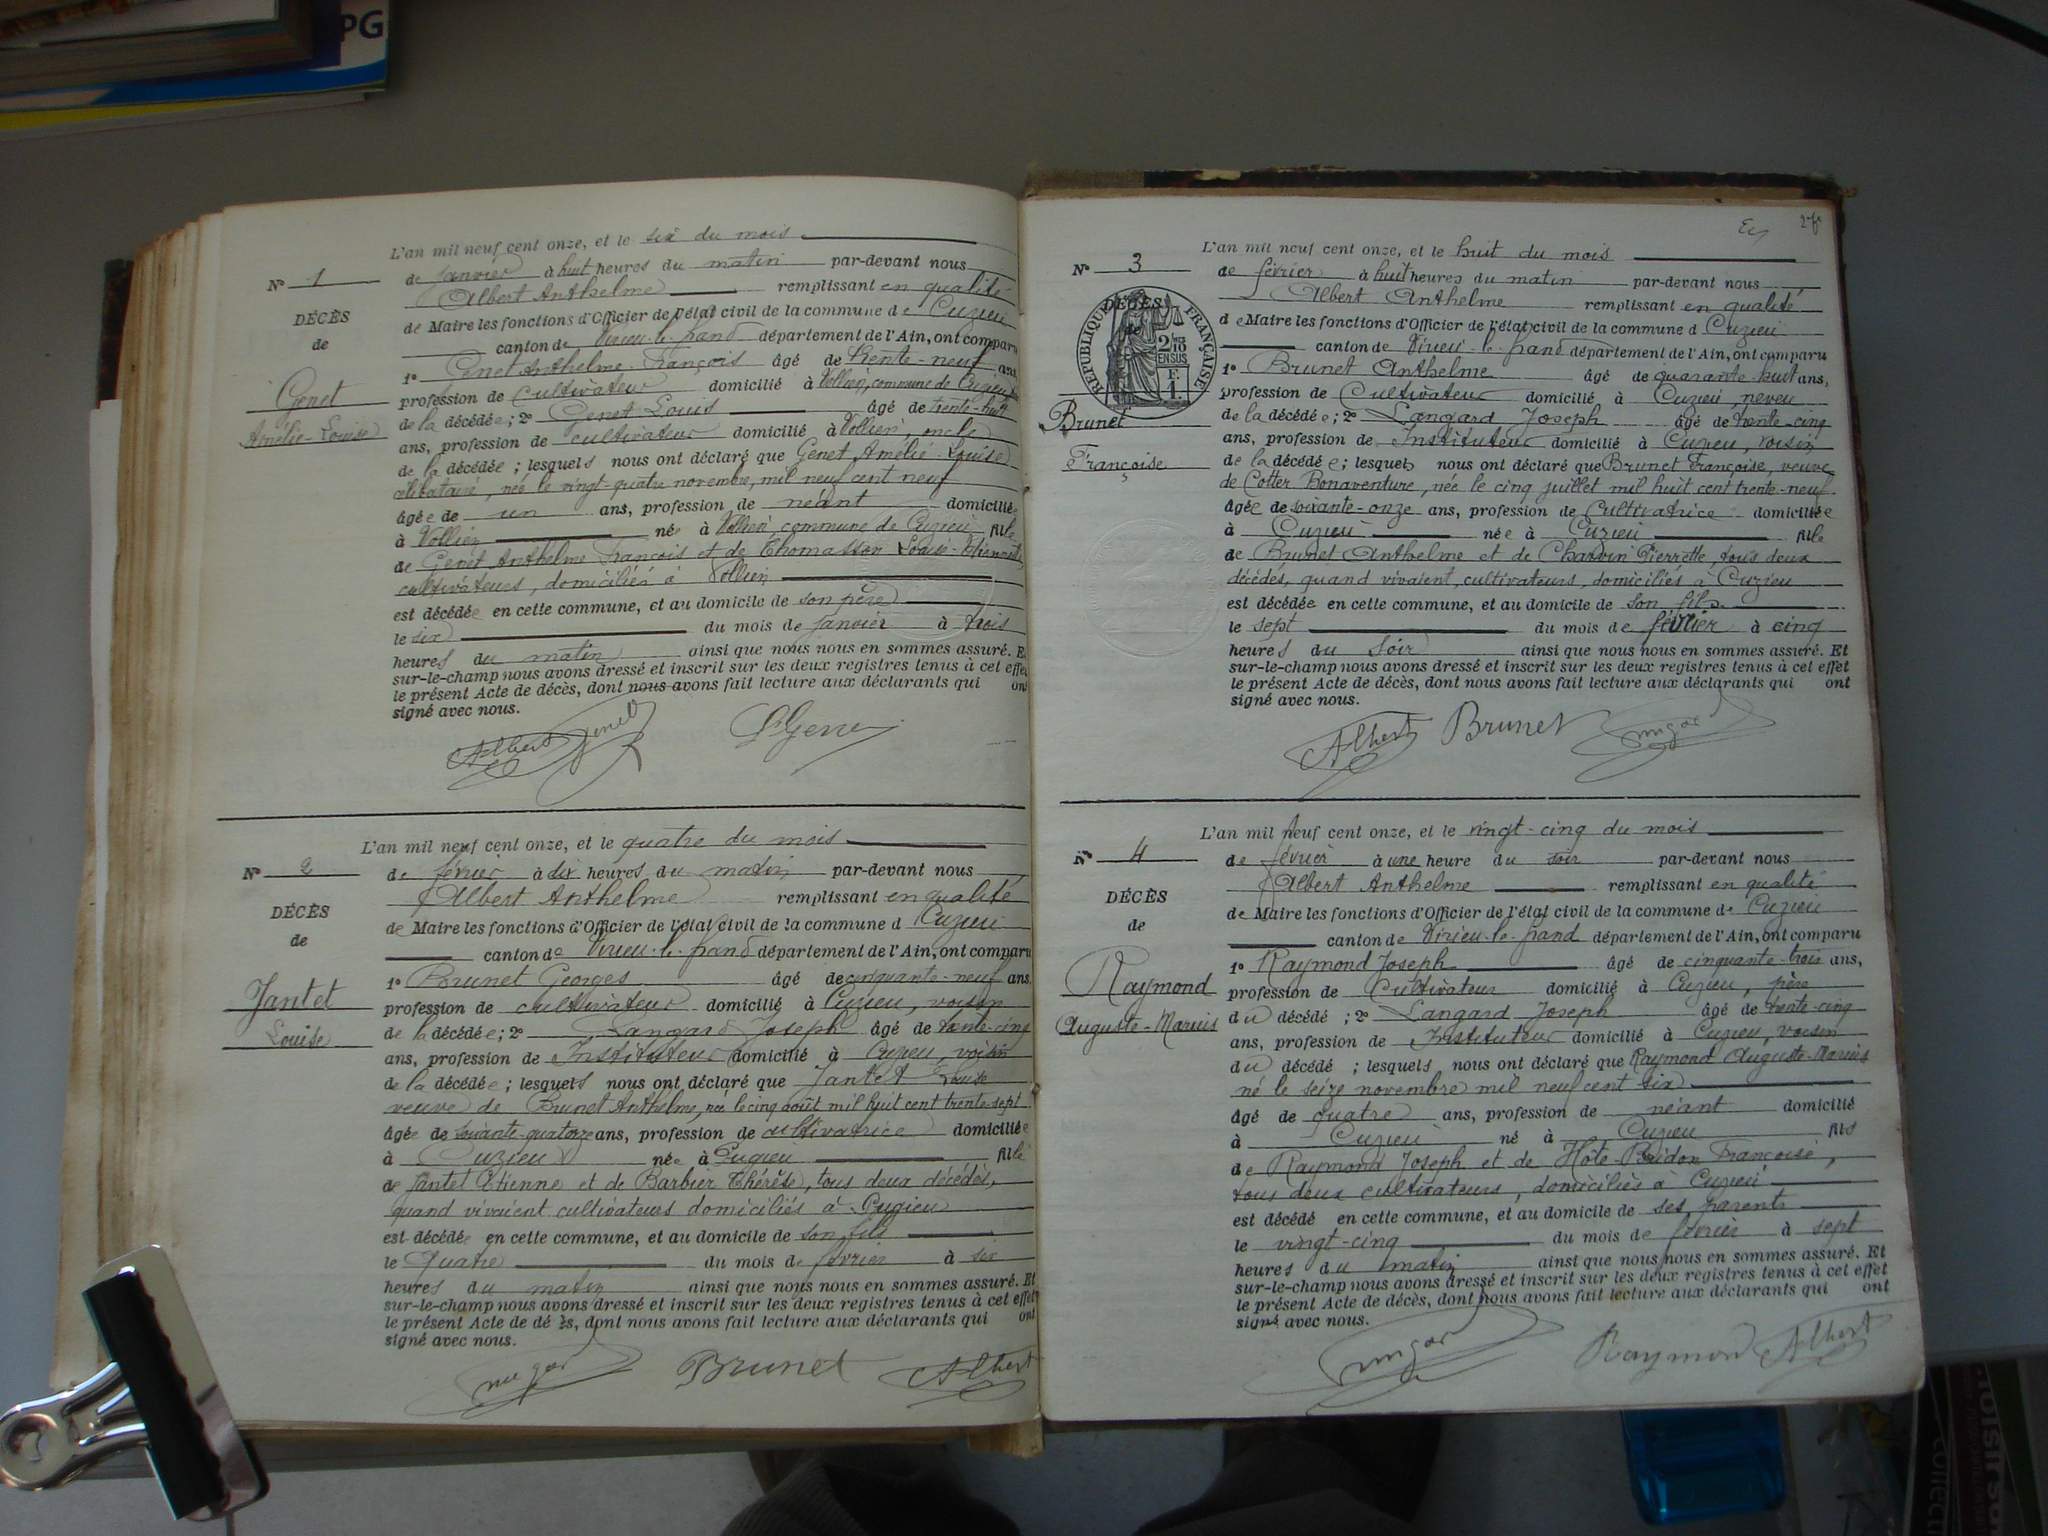 PG
L'an mil neuf cent onze, et le six du mois
N° 1
de janvier à huit heures du matin par-devant nous
Albert Anthelme remplissant en qualité
DÉCÈS
de Maire les fonctions d'Officier de l'état civil de la commune de Cuzieu
de
canton de Virieu-le-grand département de l'Ain, ont comparu
1° Genet Anthelme François âgé de trente-neuf ans,
Genet
profession de cultivateur domicilié à Vollien, commune de Cuzieu,
Amélie-Louise
de la décédée; 2° Genet Louis âgé de trente-huit
ans, profession de cultivateur domicilié à Vollien, oncle
de la décédée; lesquels nous ont déclaré que Genet Amélie-Louise
célibataire, née le vingt-quatre novembre, mil neuf cent neuf
âgée de un ans, profession de néant domiciliée
à Vollien née à Vollien commune de Cuzieu fille
de Genet Anthelme François et de Thomasson Louise
cultivateurs, domiciliés à Vollien
est décédée en cette commune, et au domicile de son père
le six du mois de janvier à trois
heures du matin ainsi que nous nous en sommes assuré. Et
sur-le-champ nous avons dressé et inscrit sur les deux registres tenus à cet effet
le présent Acte de décès, dont nous avons fait lecture aux déclarants qui ont
signé avec nous.
Albert Genet L Genet
L'an mil neuf cent onze, et le quatre du mois
N° 2
de février à dix heures du matin par-devant nous
Albert Anthelme remplissant en qualité
DÉCÈS
de Maire les fonctions d'Officier de l'état civil de la commune d Cuzieu
de
canton de Virieu-le-grand département de l'Ain, ont comparu
1° Brunet Georges âgé de cinquante-neuf ans,
Jantet
profession de cultivateur domicilié à Cuzieu, voisin
Louise
de la décédée; 2° Langard Joseph âgé de trente-cinq
ans, profession de Instituteur domicilié à Cuzieu, voisin
de la décédée; lesquels nous ont déclaré que Jantet Louise
veuve de Brunet Anthelme, née le cinq août mil huit cent trente-sept
âgée de soixante-quatorze ans, profession de cultivatrice domiciliée
à Cuzieu née à Pugieu fille
de Jantet Etienne et de Barbier Thérèse, tous deux décédés,
quand vivaient cultivateurs domiciliés à Pugieu
est décédée en cette commune, et au domicile de son fils
le Quatre du mois de février à six
heures du matin ainsi que nous nous en sommes assuré. Et
sur-le-champ nous avons dressé et inscrit sur les deux registres tenus à cet effet
le présent Acte de décès, dont nous avons fait lecture aux déclarants qui ont
signé avec nous.
Brunet Albert
L'an mil neuf cent onze, et le huit du mois
N° 3
de février à huit heures du matin par-devant nous
Albert Anthelme remplissant en qualité
DÉCÈS
de
RÉPUBLIQUE FRANÇAISE
2/10 EN SUS
F. 1.
de Maire les fonctions d'Officier de l'état civil de la commune d Cuzieu
canton de Virieu-le-grand département de l'Ain, ont comparu
1° Brunet Anthelme âgé de quarante-huit ans,
profession de Cultivateur domicilié à Cuzieu, neveu
Brunet
Françoise
de la décédée; 2° Langard Joseph âgé de trente-cinq
ans, profession de Instituteur domicilié à Cuzieu, voisin
de la décédée; lesquels nous ont déclaré que Brunet Françoise, veuve
de Cotter Bonaventure, née le cinq juillet mil huit cent trente-neuf
âgée de soixante-onze ans, profession de Cultivatrice domiciliée
à Cuzieu née à Cuzieu fille
de Brunet Anthelme et de Charvin Pierrette, tous deux
décédés, quand vivaient, cultivateurs, domiciliés à Cuzieu
est décédée en cette commune, et au domicile de son fils
le sept du mois de février à cinq
heures du soir ainsi que nous nous en sommes assuré. Et
sur-le-champ nous avons dressé et inscrit sur les deux registres tenus à cet effet
le présent Acte de décès, dont nous avons fait lecture aux déclarants qui ont
signé avec nous.
Albert Brunet
L'an mil neuf cent onze, et le vingt-cinq du mois
N° 4
de février à une heure du soir par-devant nous
Albert Anthelme remplissant en qualité
DÉCÈS
de Maire les fonctions d'Officier de l'état civil de la commune de Cuzieu
de
canton de Virieu-le-grand département de l'Ain, ont comparu
1° Raymond Joseph âgé de cinquante-trois ans,
Raymond
profession de Cultivateur domicilié à Cuzieu, père
Auguste-Marius
du décédé; 2° Langard Joseph âgé de trente-cinq
ans, profession de Instituteur domicilié à Cuzieu, voisin
du décédé; lesquels nous ont déclaré que Raymond Auguste-Marius
né le seize novembre mil neuf cent six
âgé de quatre ans, profession de néant domicilié
à Cuzieu né à Cuzieu fils
de Raymond Joseph et de Hôte-Bridon Françoise,
tous deux cultivateurs, domiciliés à Cuzieu
est décédé en cette commune, et au domicile de ses parents
le vingt-cinq du mois de février à sept
heures du matin ainsi que nous nous en sommes assuré. Et
sur-le-champ nous avons dressé et inscrit sur les deux registres tenus à cet effet
le présent Acte de décès, dont nous avons fait lecture aux déclarants qui ont
signé avec nous.
Raymond Albert